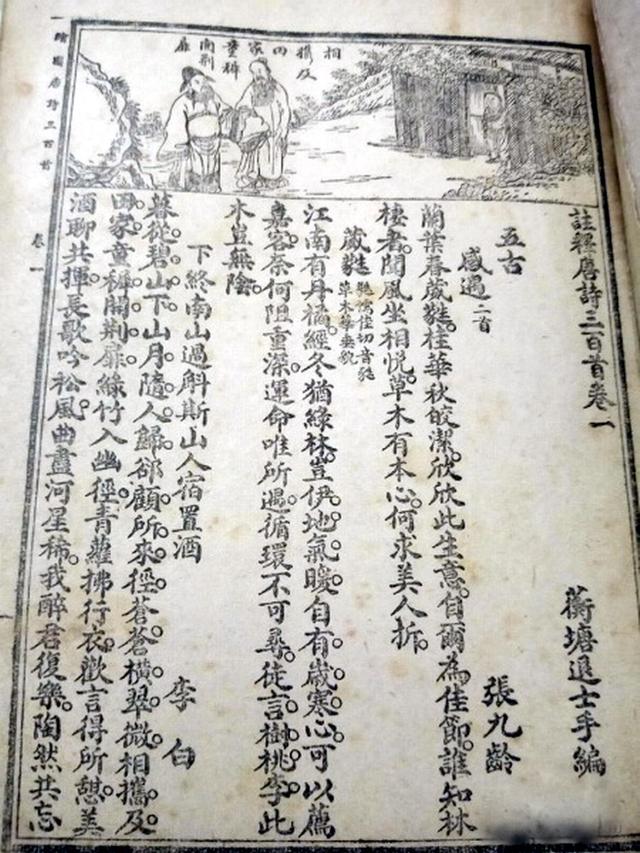 相攜及田家童稚開荊扉
註釋唐詩三百首卷一
蘅塘退士手編
五古
張九齡
感遇二首
蘭葉春葳蕤。桂華秋皎潔。欣欣此生意。自爾為佳節。誰知林
棲者。聞風坐相悅。草木有本心。何求美人折。
葳蕤
草木華垂貌
江南有丹橘。經冬猶綠林。豈伊地氣暖。自有歲寒心。可以薦
嘉客。奈何阻重深。運命唯所遇。循環不可尋。徒言樹桃李。此
木豈無陰。
下終南山過斛斯山人宿置酒
李白
暮從碧山下。山月隨人歸。卻顧所來徑。蒼蒼橫翠微。相攜及
田家。童稚開荊扉。綠竹入幽徑。青蘿拂行衣。歡言得所憩。美
酒聊共揮。長歌吟松風。曲盡河星稀。我醉君復樂。陶然共忘
繪圖唐詩三百首
卷一